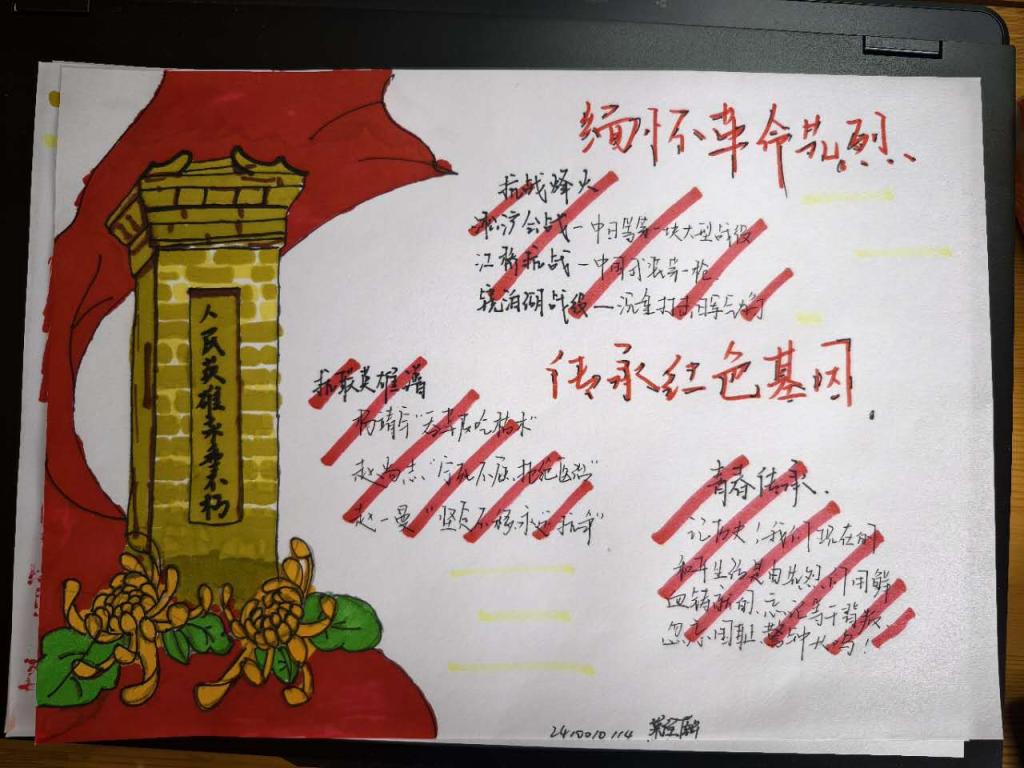 缅怀革命先烈
抗战烽火
淞沪会战—中日第一块大型战役
江桥抗战—中国武装第一枪
镜泊湖战役—沉重打击日军气焰
传承红色基因
抗联英雄谱
杨靖宇“吞草皮吃棉木”
赵尚志“宁死不屈、拒绝医治”
赵一曼“坚贞不移、永远抗争”
青春传承.
记历史！我们现在的
和平生活是由先烈们用鲜
血铸就的、忘记等于背叛、
忽忘国耻、警钟大鸣！
人民英雄永垂不朽
2410010114